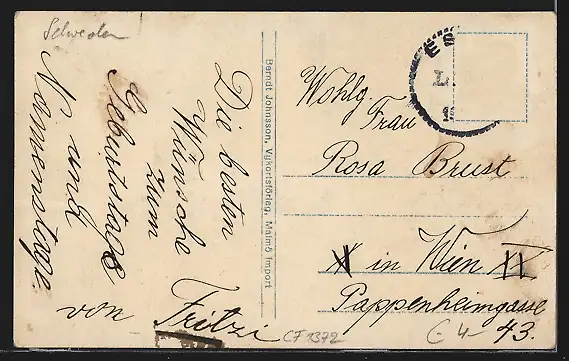 Schweden
Die besten
Wünsche
zum
Geburtstage
und
Namenstage
von Fritzi
Berndt Johnsson, Vykortsförlag, Malmö Import
Wohlg.
Frau
Rosa Brust
X in Wien XV
Pappenheimgasse
43.
CF 1372
C 4-
ES
L
1